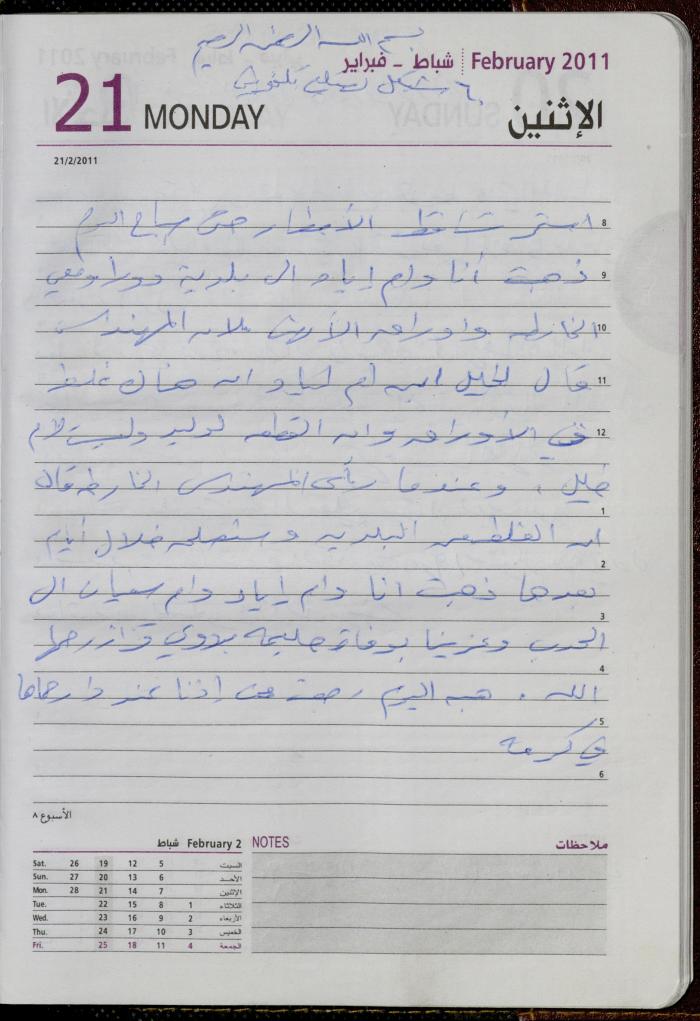 بسم الله الرحمن الرحيم
شباط - فبراير February 2011
21 MONDAY الإثنين
21/2/2011
8 استمر تساقط الأمطار حتى صباح اليوم
9 ذهبت أنا وام إياد الى بلدية دورا ومعي
10 الخارطه واوراق الأرض لان المهندس
11 قال لخليل ابن ام اياد انه هناك غلط
12 في الأوراق وان القطعه لوليد وليست لأم
خليل . وعندما رأى المهندس الخارطه قال
1
ان الغلط من البلديه وستصلحه خلال أيام
2
بعدها ذهبت انا وام إياد وام سفيان الى
3
الحدب وعزينا بوفاة حليمه بدوي قزاز رحمها
4
الله . هبه اليوم رجعت من عند دار حماها
5
في كرمه
6
الأسبوع ٨
February 2 شباط
Sat. 26 19 12 5 السبت
Sun. 27 20 13 6 الأحد
Mon. 28 21 14 7 الإثنين
Tue. 22 15 8 1 الثلاثاء
Wed. 23 16 9 2 الأربعاء
Thu. 24 17 10 3 الخميس
Fri. 25 18 11 4 الجمعة
NOTES ملاحظات